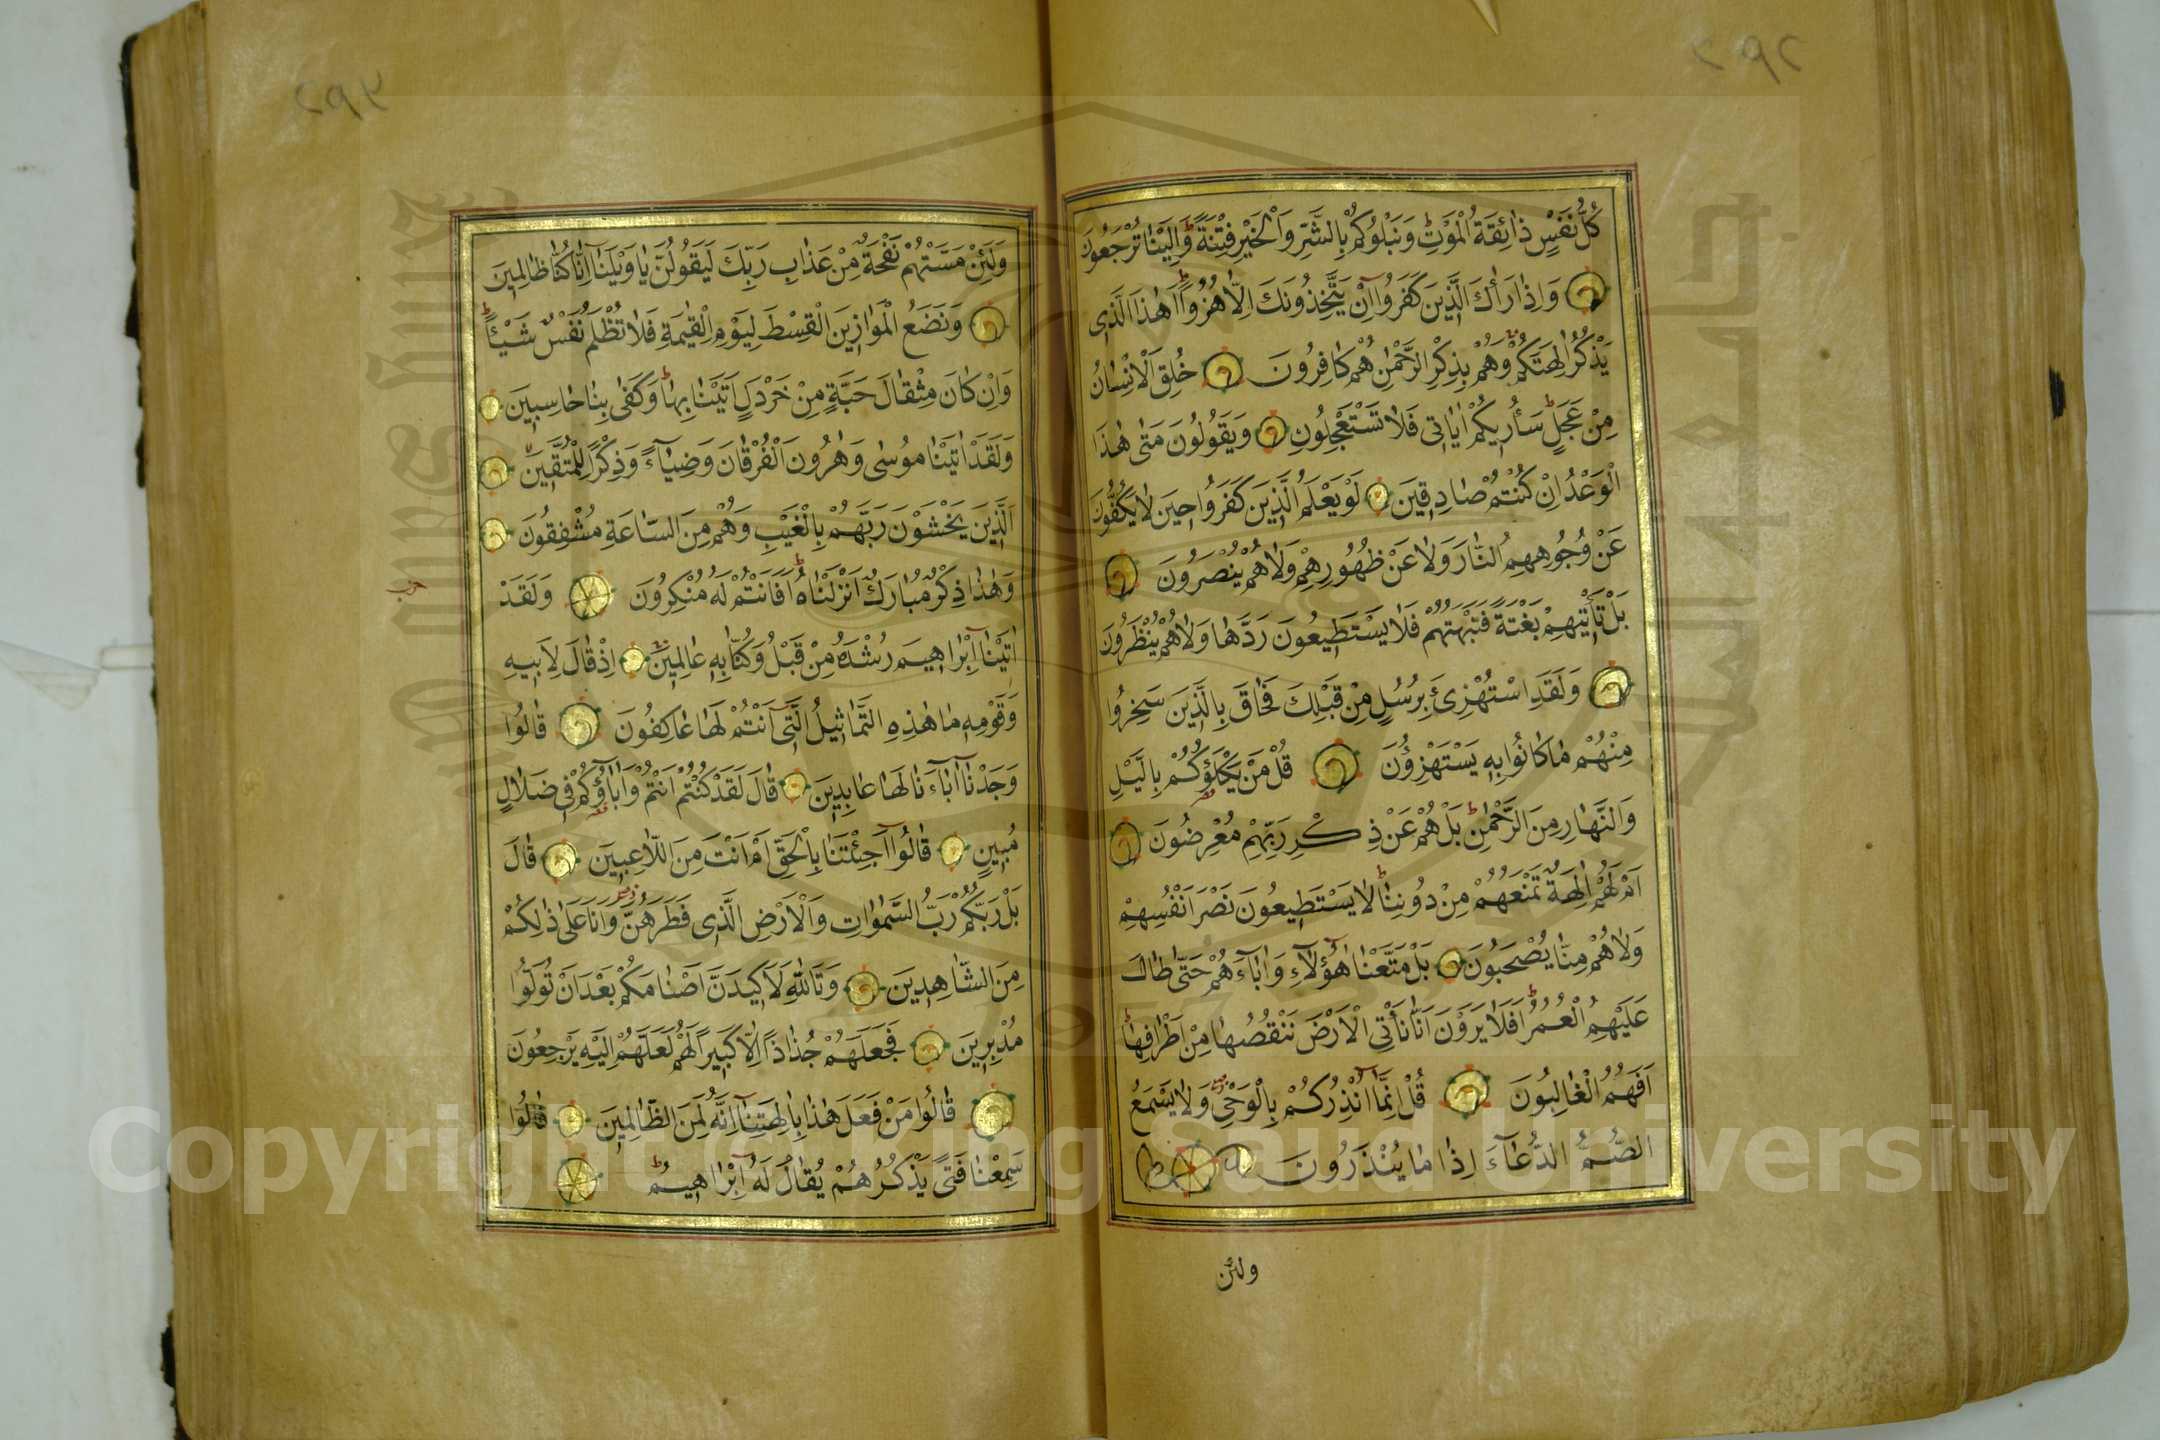 ٢٩٢
كُلُّ نَفْسٍ ذٰائِقَةُ الْمَوْتِ وَنَبْلُوكُمْ بِالشَّرِّ وَالْخَيْرِ فِتْنَةً وَاِلَيْنٰا تُرْجَعُونَ
وَاِذٰا رَاٰكَ الَّذِينَ كَفَرُوا اِنْ يَتَّخِذُونَكَ اِلّٰا هُزُوًا اَهٰذَا الَّذِى
يَذْكُرُ اٰلِهَتَكُمْ وَهُمْ بِذِكْرِ الرَّحْمٰنِ هُمْ كٰافِرُونَ خُلِقَ الْاِنْسٰانُ
مِنْ عَجَلٍ سَاُرِيكُمْ اٰيٰاتِى فَلٰا تَسْتَعْجِلُونِ وَيَقُولُونَ مَتٰى هٰذَا
الْوَعْدُ اِنْ كُنْتُمْ صٰادِقِينَ لَوْ يَعْلَمُ الَّذِينَ كَفَرُوا حِينَ لٰا يَكُفُّونَ
عَنْ وُجُوهِهِمُ النّٰارَ وَلٰا عَنْ ظُهُورِهِمْ وَلٰا هُمْ يُنْصَرُونَ
بَلْ تَأْتِيهِمْ بَغْتَةً فَتَبْهَتُهُمْ فَلٰا يَسْتَطِيعُونَ رَدَّهٰا وَلٰا هُمْ يُنْظَرُونَ
وَلَقَدِ اسْتُهْزِئَ بِرُسُلٍ مِنْ قَبْلِكَ فَحٰاقَ بِالَّذِينَ سَخِرُوا
مِنْهُمْ مٰا كٰانُوا بِهِ يَسْتَهْزِؤُنَ قُلْ مَنْ يَكْلَؤُكُمْ بِالَّيْلِ
وَالنَّهٰارِ مِنَ الرَّحْمٰنِ بَلْ هُمْ عَنْ ذِكْرِ رَبِّهِمْ مُعْرِضُونَ
اَمْ لَهُمْ اٰلِهَةٌ تَمْنَعُهُمْ مِنْ دُونِنٰا لٰا يَسْتَطِيعُونَ نَصْرَ اَنْفُسِهِمْ
وَلٰا هُمْ مِنّٰا يُصْحَبُونَ بَلْ مَتَّعْنٰا هٰؤُلٰآءِ وَاٰبٰآءَهُمْ حَتّٰى طٰالَ
عَلَيْهِمُ الْعُمُرُ اَفَلٰا يَرَوْنَ اَنّٰا نَأْتِى الْاَرْضَ نَنْقُصُهٰا مِنْ اَطْرٰافِهٰا
اَفَهُمُ الْغٰالِبُونَ قُلْ اِنَّمٰا اُنْذِرُكُمْ بِالْوَحْىِ وَلٰا يَسْمَعُ
الصُّمُّ الدُّعٰآءَ اِذٰا مٰا يُنْذَرُونَ
ولئن
٢٩٣
وَلَئِنْ مَسَّتْهُمْ نَفْحَةٌ مِنْ عَذٰابِ رَبِّكَ لَيَقُولُنَّ يٰا وَيْلَنٰا اِنّٰا كُنّٰا ظٰالِمِينَ
وَنَضَعُ الْمَوٰازِينَ الْقِسْطَ لِيَوْمِ الْقِيٰمَةِ فَلٰا تُظْلَمُ نَفْسٌ شَيْـًٔا
وَاِنْ كٰانَ مِثْقٰالَ حَبَّةٍ مِنْ خَرْدَلٍ اَتَيْنٰا بِهٰا وَكَفٰى بِنٰا حٰاسِبِينَ
وَلَقَدْ اٰتَيْنٰا مُوسٰى وَهٰرُونَ الْفُرْقٰانَ وَضِيٰآءً وَذِكْرًا لِلْمُتَّقِينَ
اَلَّذِينَ يَخْشَوْنَ رَبَّهُمْ بِالْغَيْبِ وَهُمْ مِنَ السّٰاعَةِ مُشْفِقُونَ
وَهٰذٰا ذِكْرٌ مُبٰارَكٌ اَنْزَلْنٰاهُ اَفَاَنْتُمْ لَهُ مُنْكِرُونَ وَلَقَدْ
حزب
اٰتَيْنٰا اِبْرٰاهِيمَ رُشْدَهُ مِنْ قَبْلُ وَكُنّٰا بِهِ عٰالِمِينَ اِذْ قٰالَ لِاَبِيهِ
وَقَوْمِهِ مٰا هٰذِهِ التَّمٰاثِيلُ الَّتِى اَنْتُمْ لَهٰا عٰاكِفُونَ قٰالُوا
وَجَدْنٰا اٰبٰآءَنٰا لَهٰا عٰابِدِينَ قٰالَ لَقَدْ كُنْتُمْ اَنْتُمْ وَاٰبٰآؤُكُمْ فِى ضَلٰالٍ
مُبِينٍ قٰالُوا اَجِئْتَنٰا بِالْحَقِّ اَمْ اَنْتَ مِنَ اللّٰاعِبِينَ قٰالَ
بَلْ رَبُّكُمْ رَبُّ السَّمٰوٰاتِ وَالْاَرْضِ الَّذِى فَطَرَهُنَّ وَاَنَا عَلٰى ذٰلِكُمْ
مِنَ الشّٰاهِدِينَ وَتَاللّٰهِ لَاَكِيدَنَّ اَصْنٰامَكُمْ بَعْدَ اَنْ تُوَلُّوا
مُدْبِرِينَ فَجَعَلَهُمْ جُذٰاذًا اِلّٰا كَبِيرًا لَهُمْ لَعَلَّهُمْ اِلَيْهِ يَرْجِعُونَ
قٰالُوا مَنْ فَعَلَ هٰذٰا بِاٰلِهَتِنٰا اِنَّهُ لَمِنَ الظّٰالِمِينَ قٰالُوا
سَمِعْنٰا فَتًى يَذْكُرُهُمْ يُقٰالُ لَهُ اِبْرٰاهِيمُ
Copyright © King Saud University